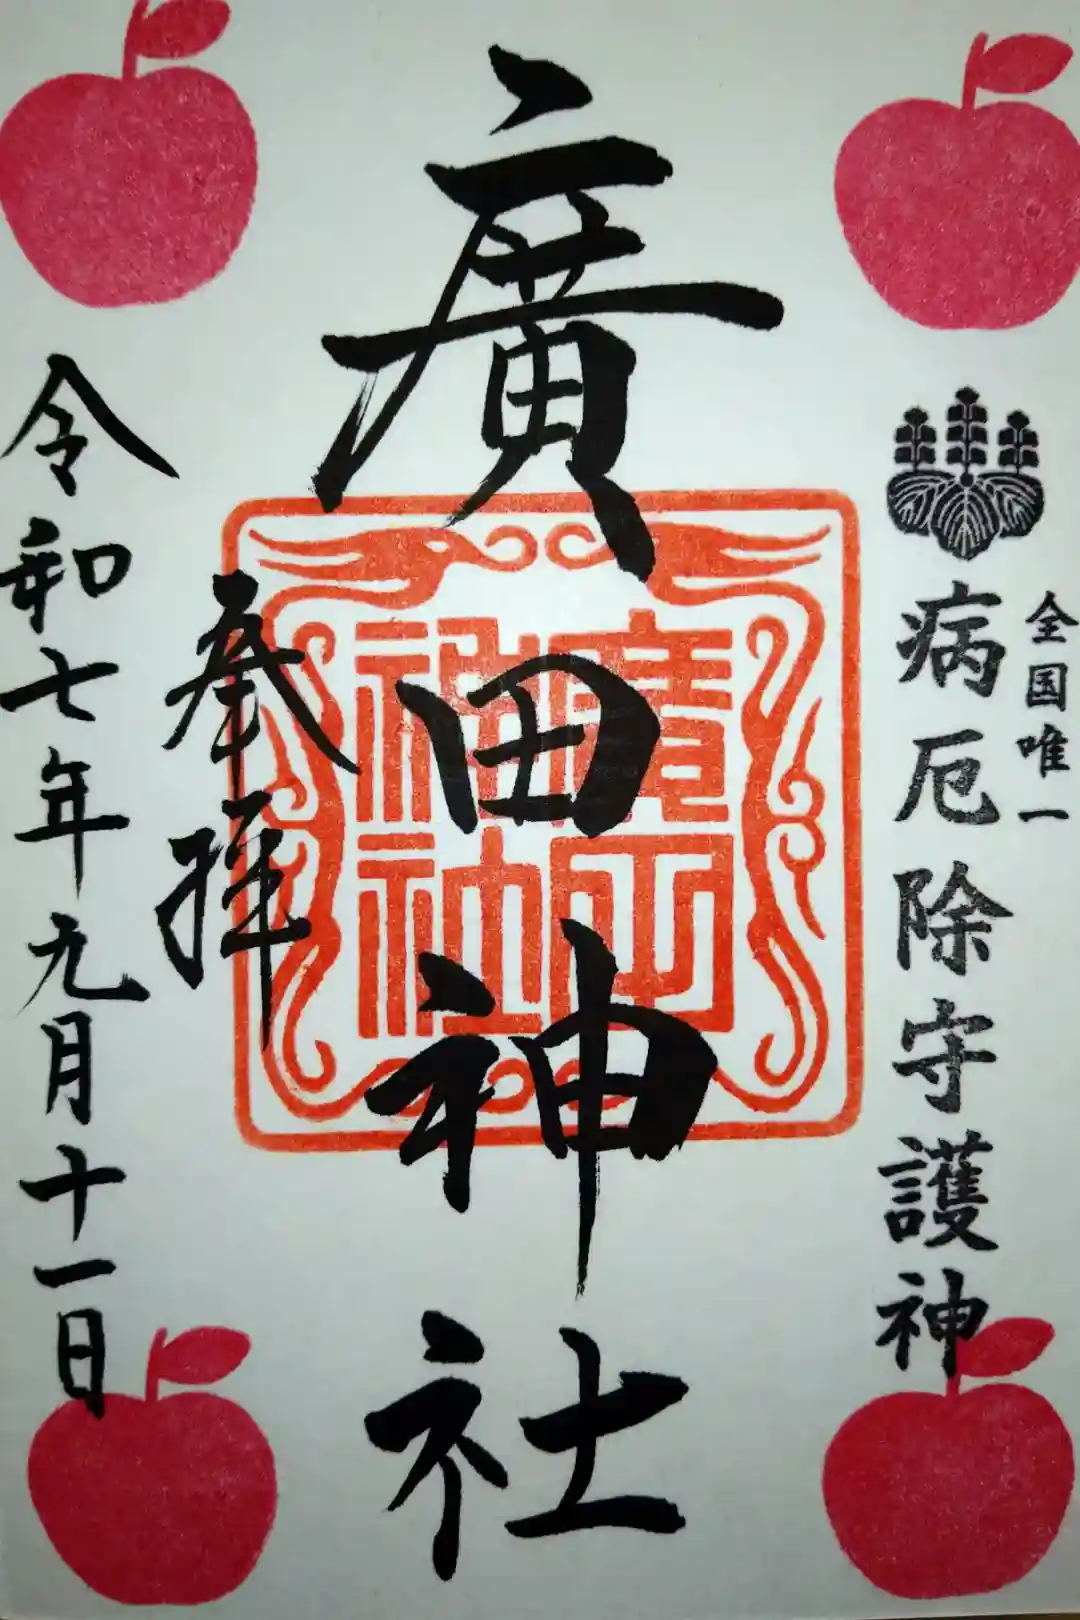 全国唯一
病厄除守護神
廣田神社
廣田神社
奉拝
令和七年九月十一日